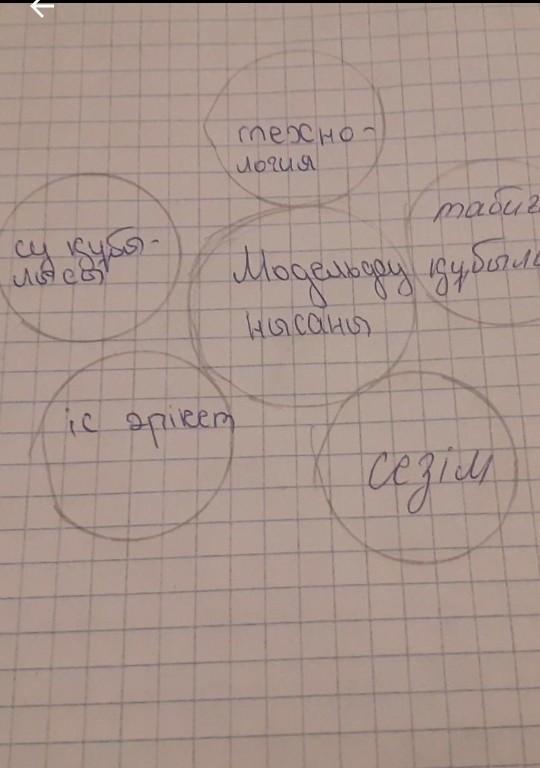 техно-
логия
табиғ
құбыл
су құбы-
лысы
Модельдеу
нысаны
іс әрікет
сезім